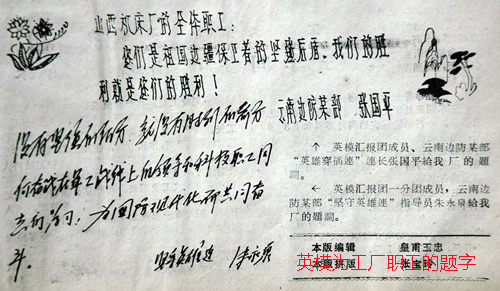 山西机床厂的全体职工：
您们是祖国边疆保卫者的坚强后盾、我们的胜
利就是您们的胜利！
云南边防某部 张国平
没有坚强的后方，就没有胜利的前方
向奋战在军工战线上的领导和科技职工同
志们学习，为国防现代化而共同奋
斗。
坚守英雄连 朱永泉
↑ 英模汇报团成员、云南边防某部
“英雄穿插连”连长张国平給我厂的题
詞。
← 英模汇报团一分团成员，云南边
防某部“坚守英雄连”指导员朱永泉給我
厂的题詞。
本版编辑 皇甫玉忠
本版
英模为工厂职工的题字